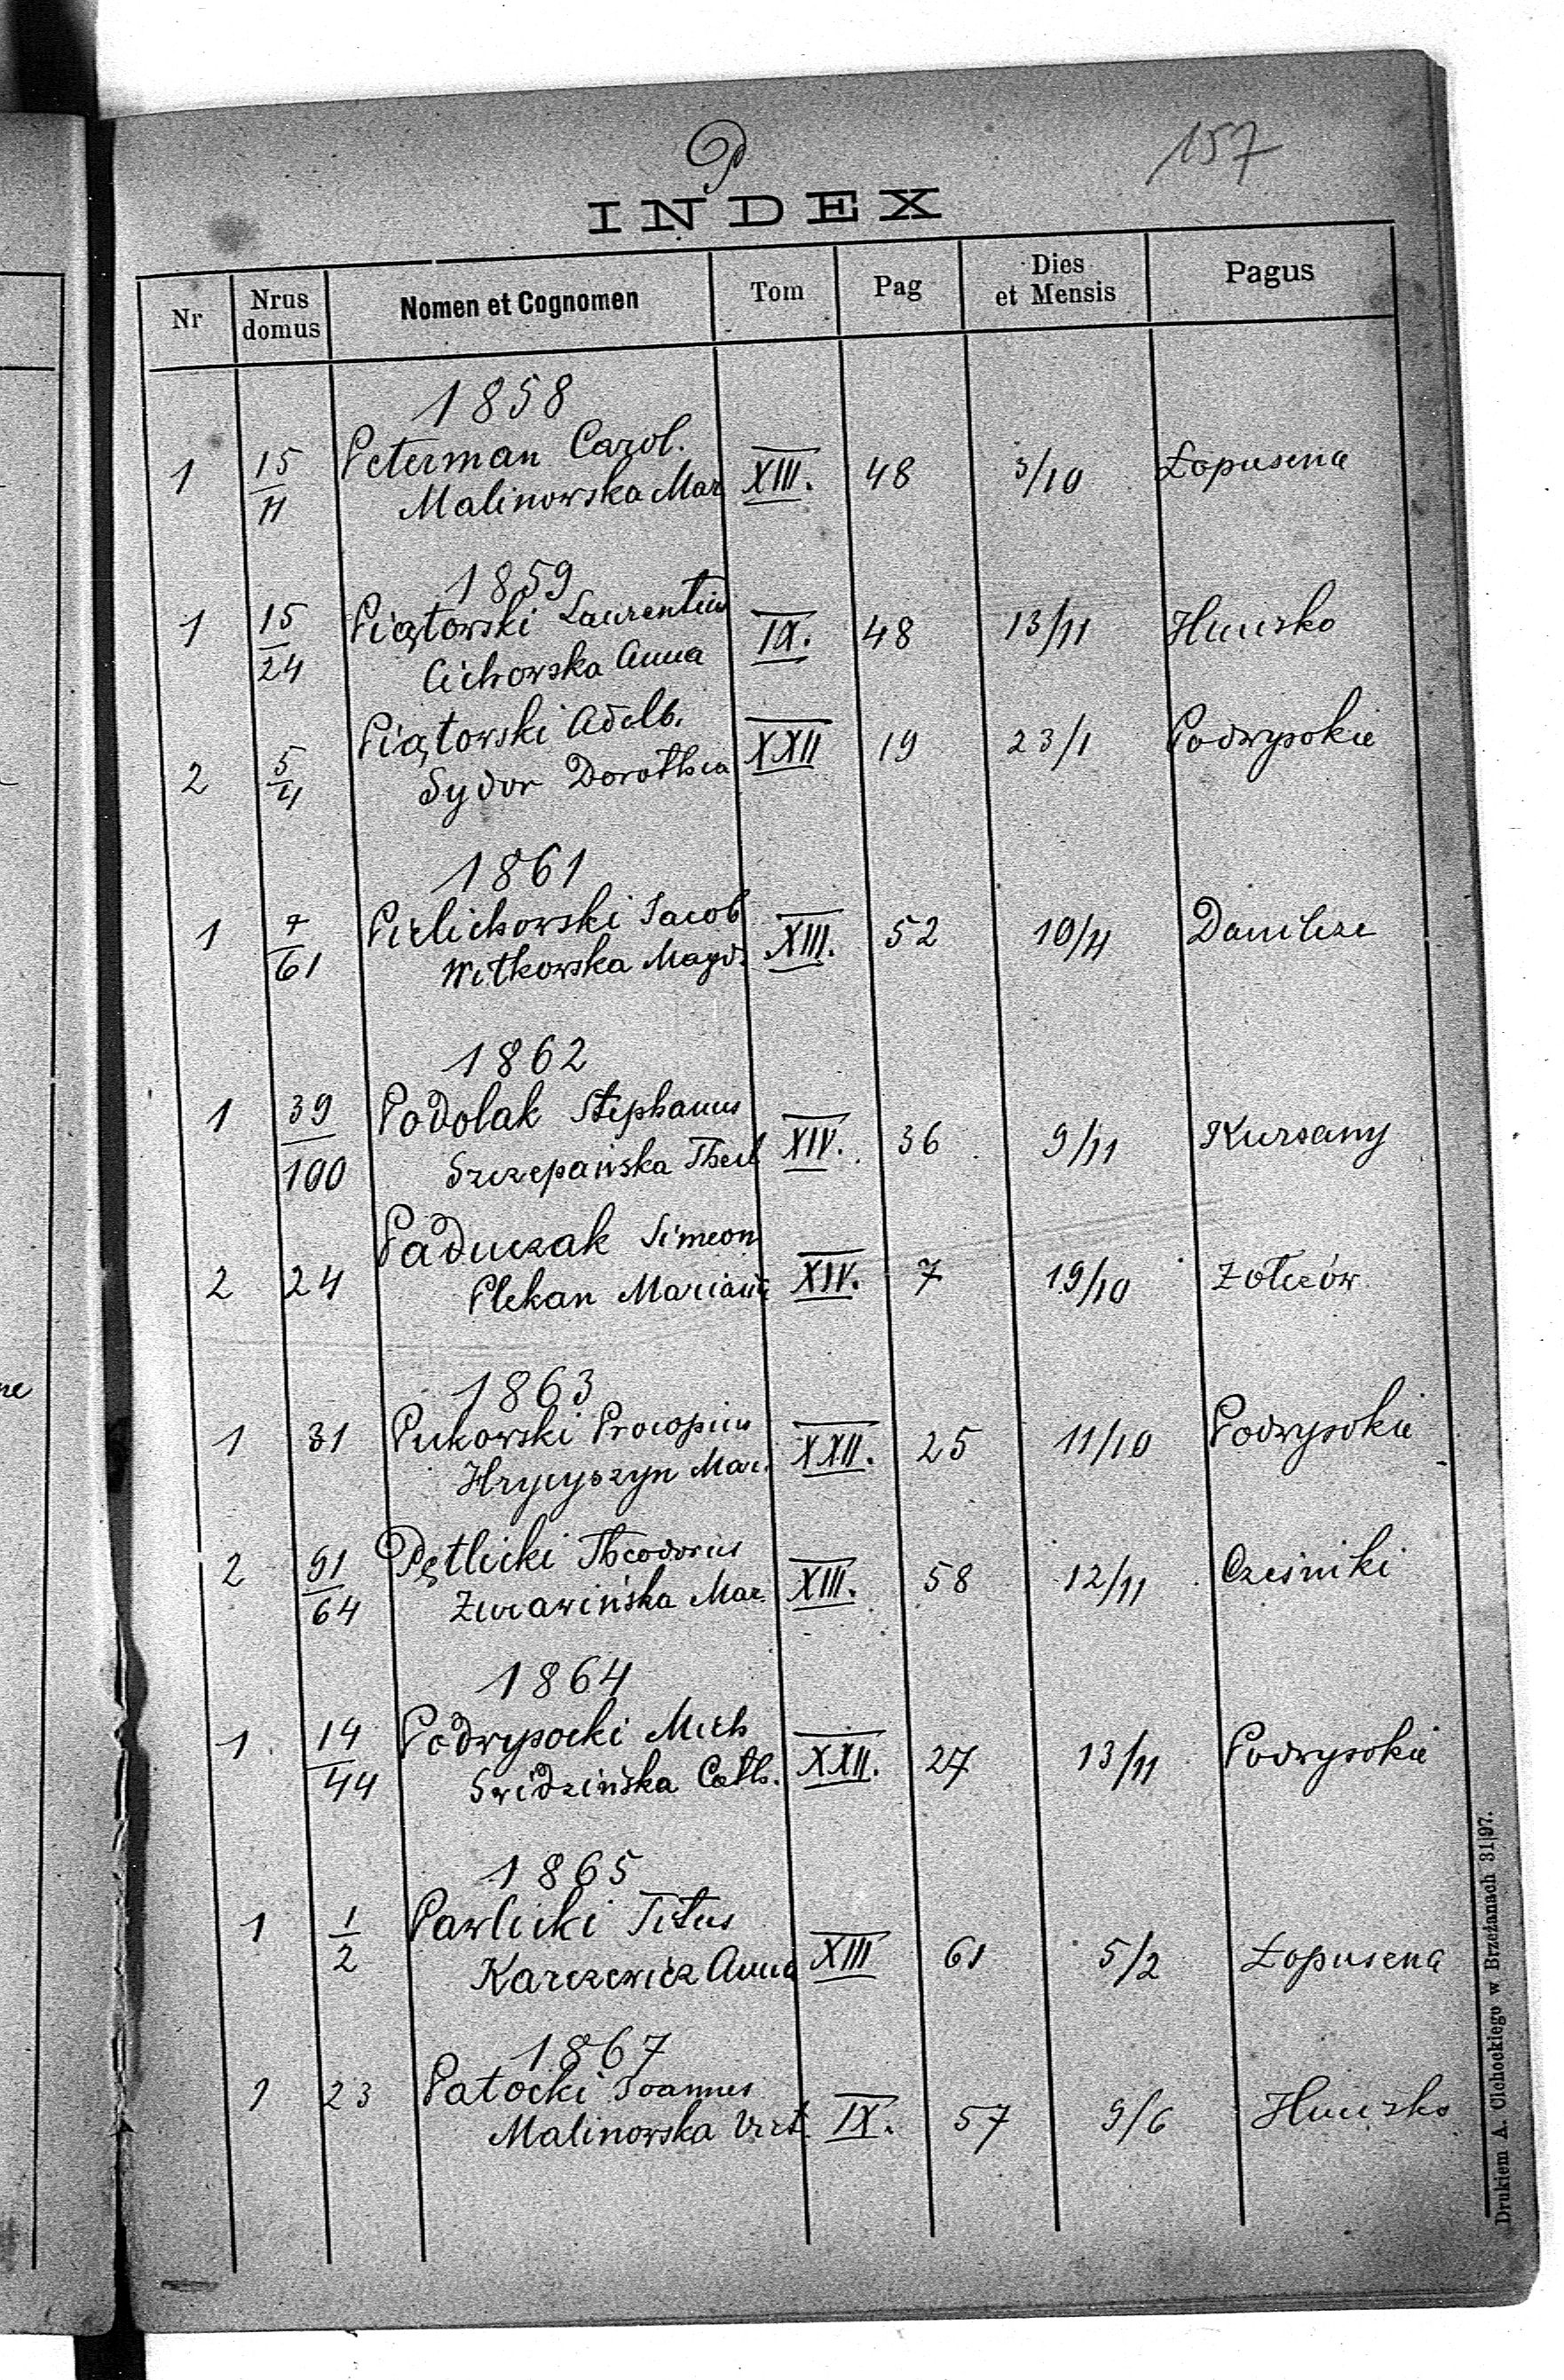 P
157
INDEX
Nr Nrus domus Nomen et Cognomen Tom Pag Dies et Mensis Pagus
1858
1 15/11 Peterman Carol. XIII. 48 3/10 Łopuszna
Malinowska Mar
1859
1 15/24 Piątowski Laurentius IX. 48 13/11 Hucisko
Cichowska Anna
2 5/4 Piątowski Adelb. XXII 19 23/1 Podwysokie
Sydor Dorothea
1861
1 7/61 Pielichowski Jacob XIII. 52 10/11 Danilcze
Witkowska Magd.
1862
1 39/100 Podolak Stephanus XIV. 36 9/11 Kurzany
Szczepańska Thecl
2 24 Paduczak Simeon XIV. 7 19/10 Żołczów
Plekan Mariann
1863
1 31 Pukowski Procopius XXII. 25 11/10 Podwysokie
Hrycyszyn Mar.
2 91/64 Pętlicki Theodorus XIII. 58 12/11 Cześniki
Żurawińska Mar.
1864
1 14/44 Podwysocki Mich XXII. 27 13/11 Podwysokie
Swidzińska Cath.
1865
1 1/2 Pawlicki Titus XIII 61 5/2 Łopuszna
Karczewicz Anna
1867
1 23 Patocki Joannes IX. 57 9/6 Hucisko
Malinowska Vict.
Drukiem A. Cichockiego w Brzeżanach 31|97.